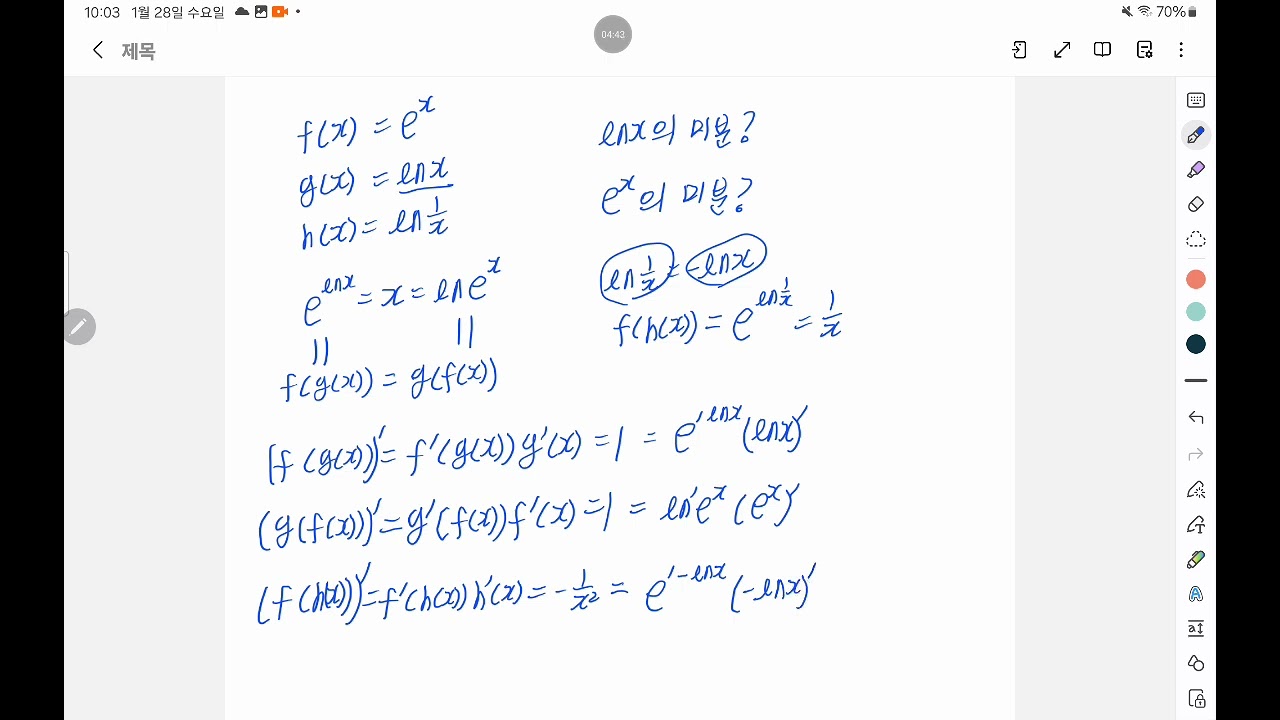 10:03 1월 28일 수요일
70%
04:43
제목
f(x) = e^x
g(x) = lnx
h(x) = ln 1/x
e^lnx = x = lne^x
|| ||
f(g(x)) = g(f(x))
lnx의 미분?
e^x의 미분?
ln 1/x = -lnx
f(h(x)) = e^ln 1/x = 1/x
(f(g(x)))' = f'(g(x))g'(x) = 1 = e'^lnx (lnx)'
(g(f(x)))' = g'(f(x))f'(x) = 1 = ln'e^x (e^x)'
(f(h(x)))' = f'(h(x))h'(x) = -1/x² = e'^-lnx (-lnx)'